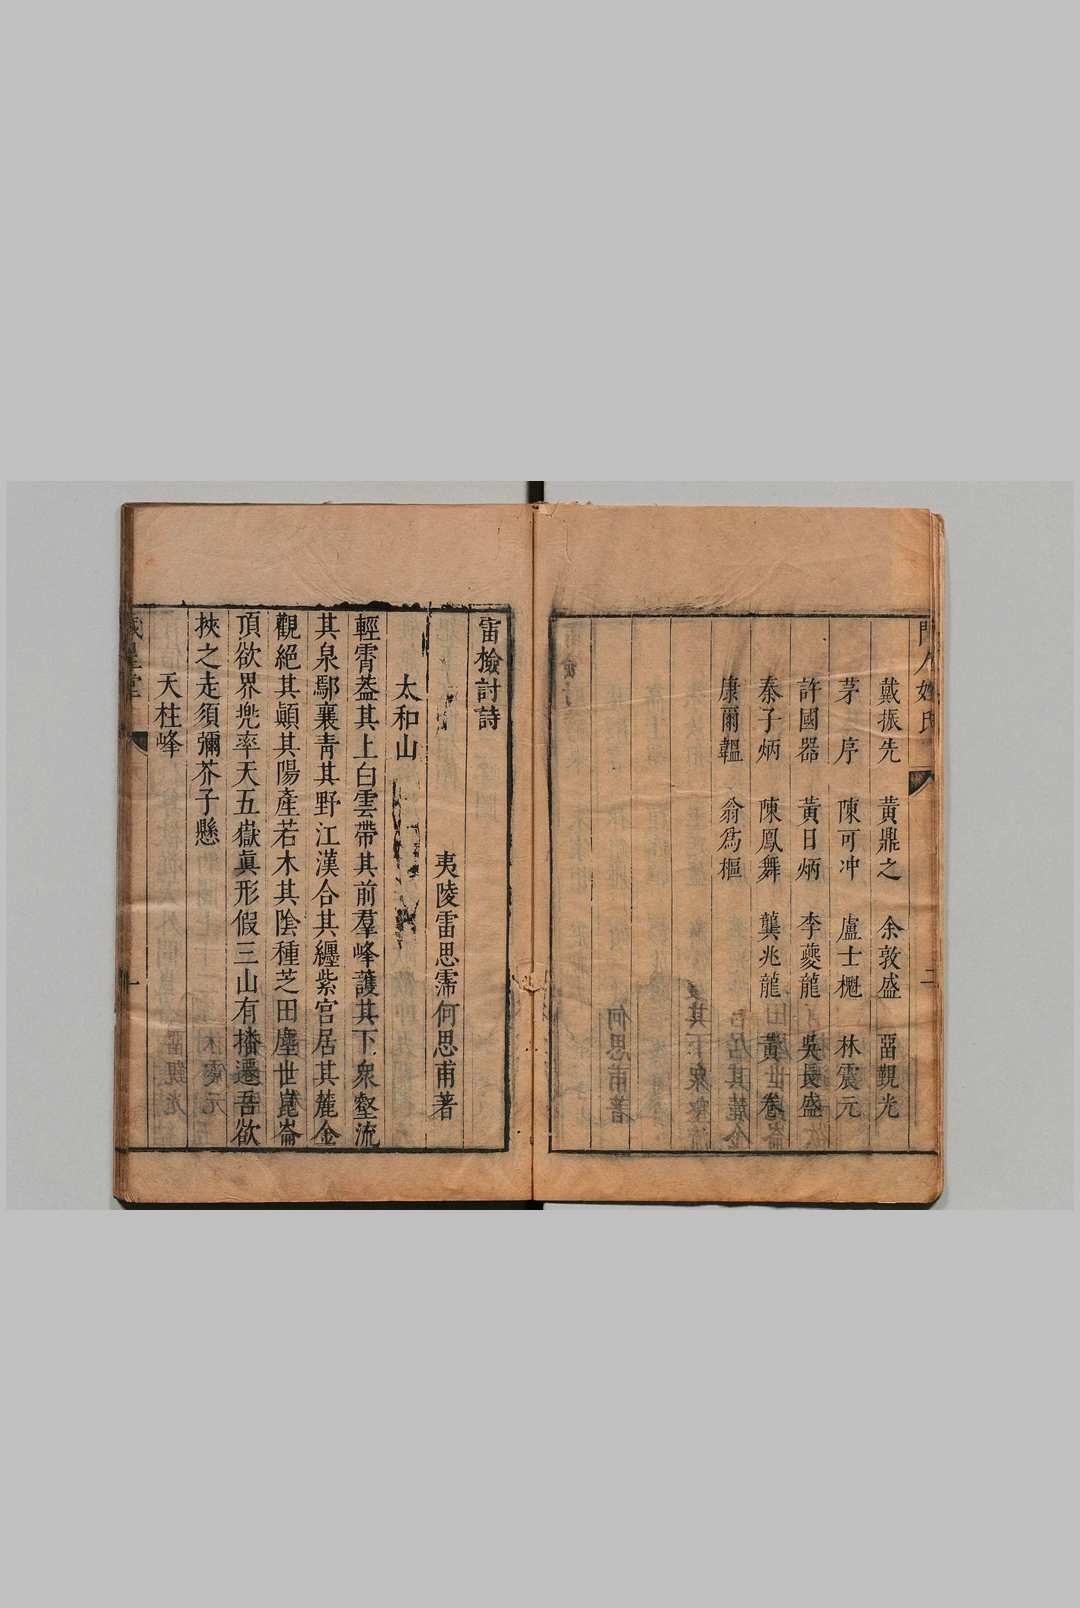 門人姓氏
二
戴振先 黃鼎之 余敦盛 畱覲光
茅序 陳可冲 盧士樾 林震元
許國器 黃日炳 李夔龍 吳長盛
秦子炳 陳鳳舞 龔兆龍 黃卷
康爾韞 翁爲樞
雷檢討詩
夷陵雷思霈何思甫著
太和山
輕霄葢其上白雲帶其前羣峰護其下衆壑流
其泉鄢襄靑其野江漢合其纏紫宮居其麓金
觀絕其顚其陽產若木其陰種芝田塵世崑崙
頂欲界兠率天五嶽眞形假三山有播遷吾欲
挾之走須彌芥子懸
天柱峰
歲星堂
一